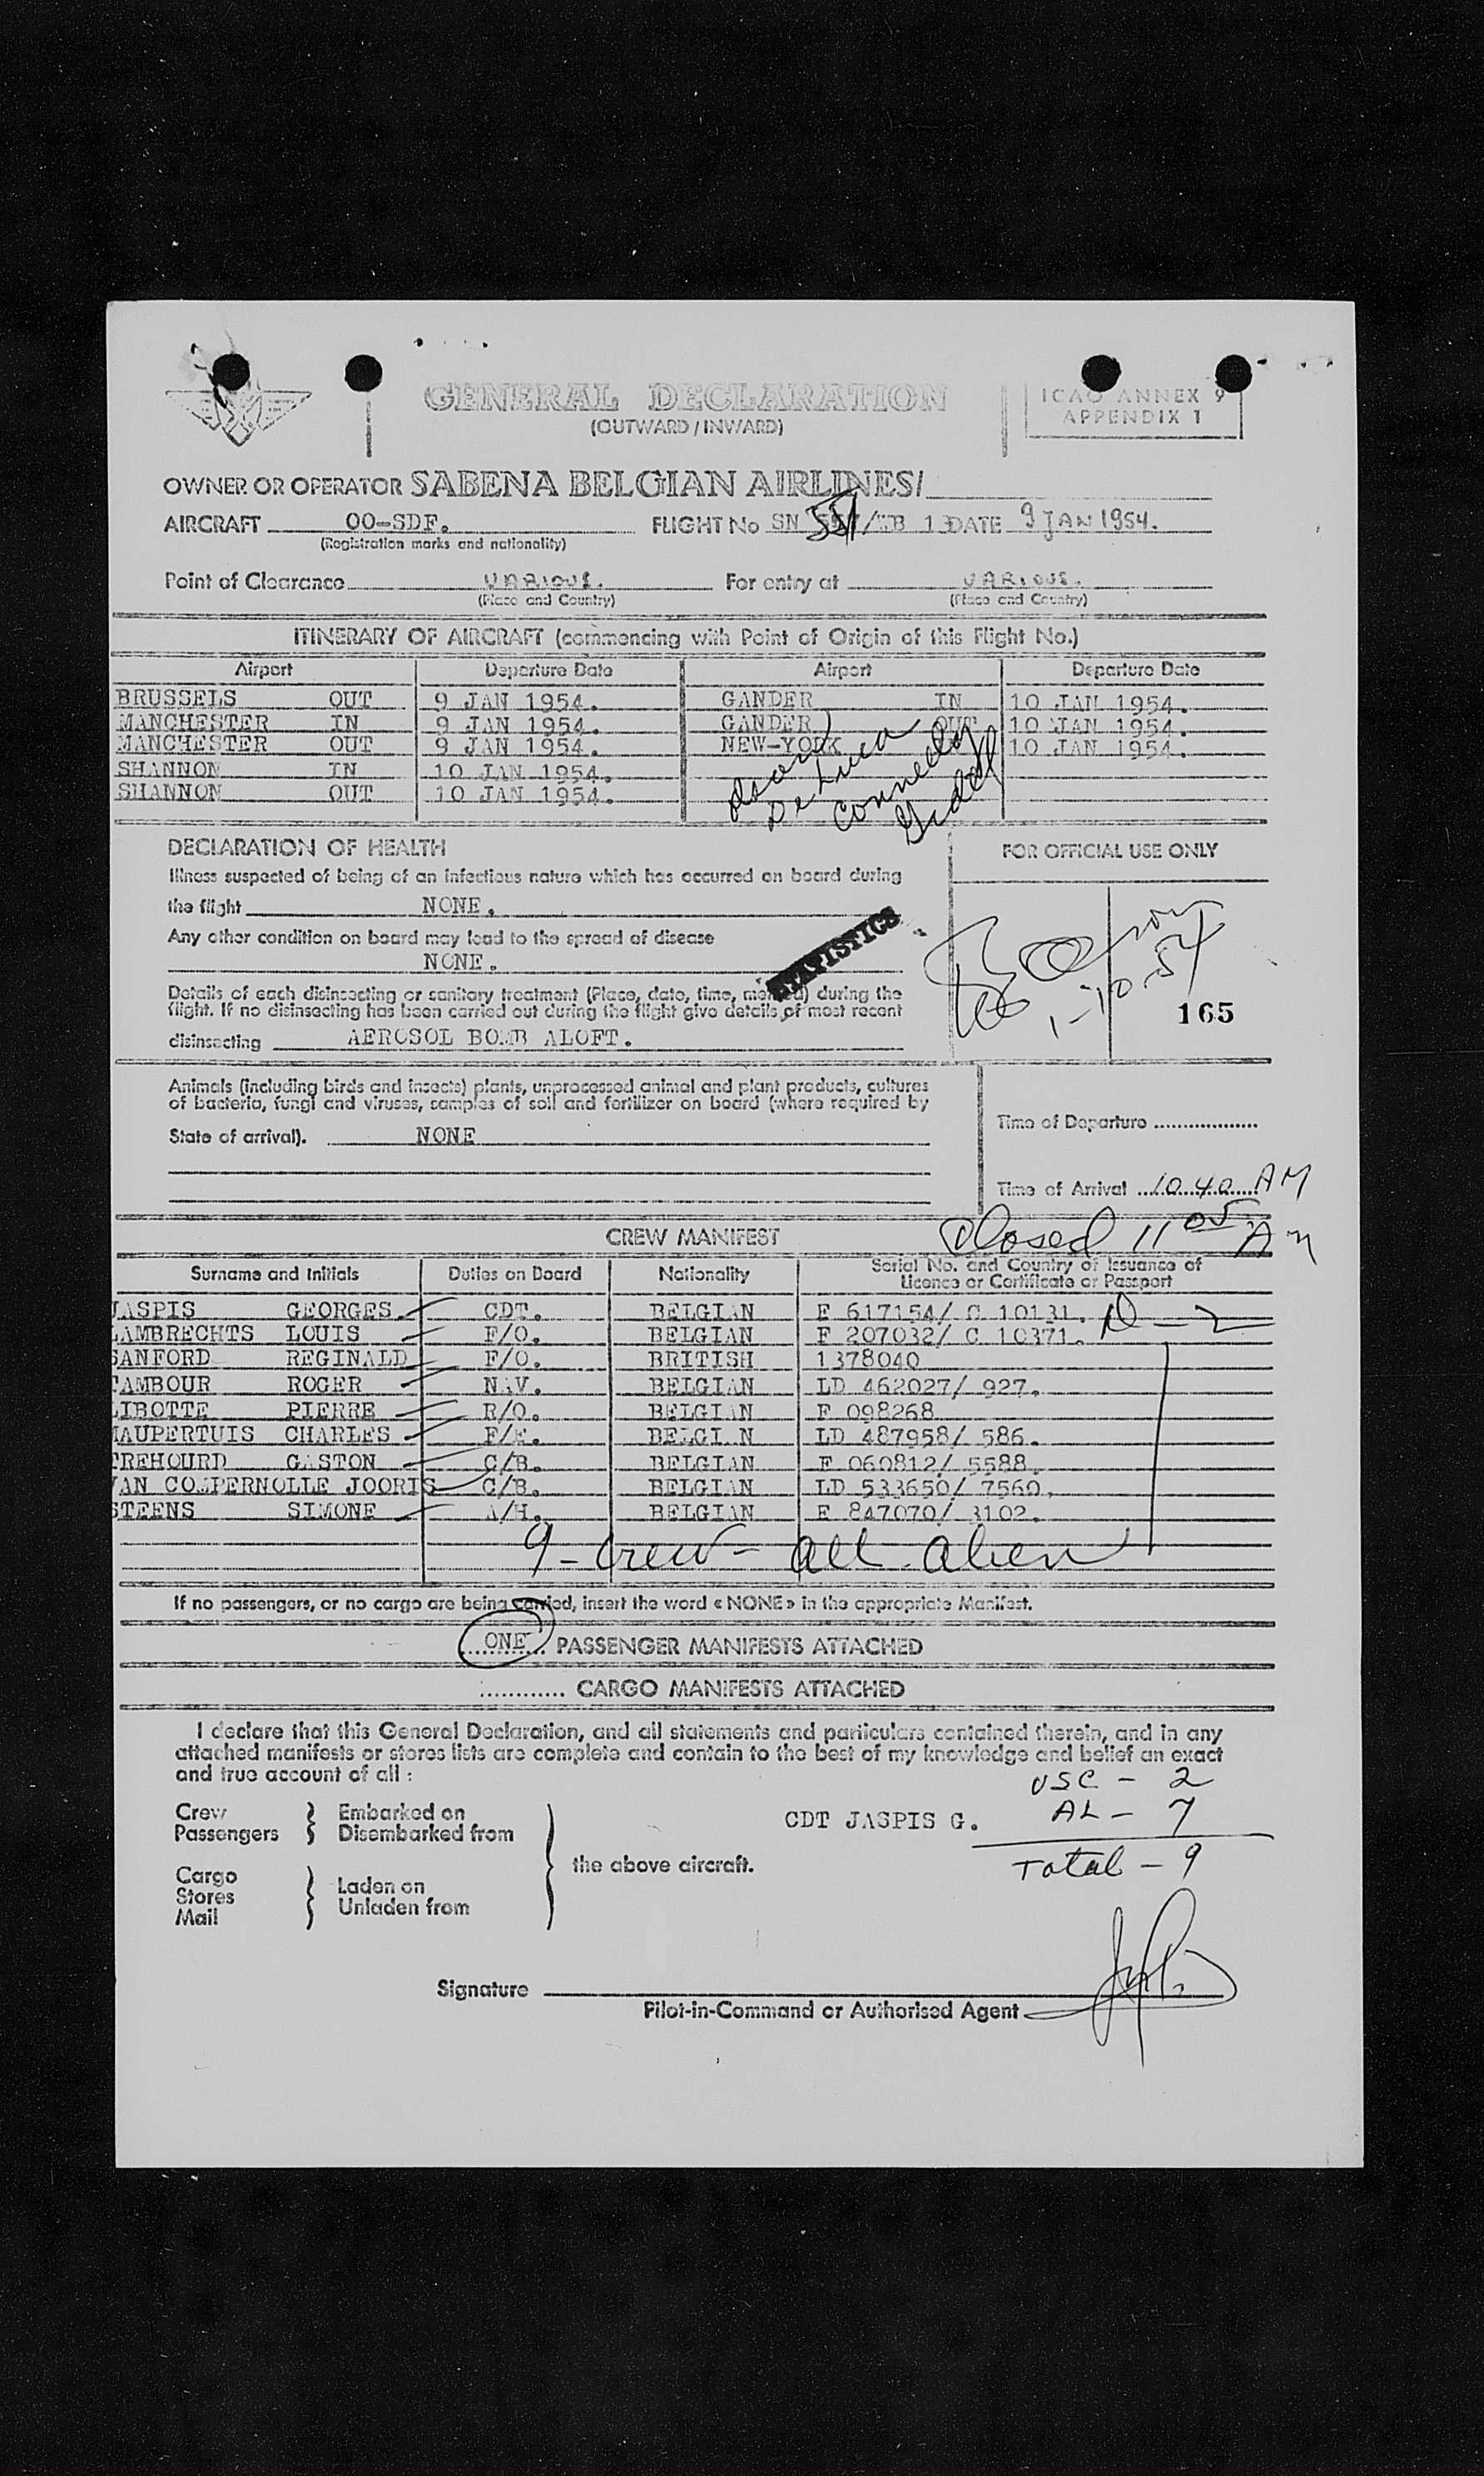 GENERAL DECLARATION
(OUTWARD / INWARD)
ICAO ANNEX 9
APPENDIX 1
OWNER OR OPERATOR SABENA BELGIAN AIRLINES/
AIRCRAFT OO-SDF. FLIGHT No SN 551/WB 13 DATE 9 JAN 1954.
(Registration marks and nationality)
Point of Clearance VARIOUS. For entry at VARIOUS.
(Place and Country) (Place and Country)
ITINERARY OF AIRCRAFT (commencing with Point of Origin of this Flight No.)
Airport Departure Date Airport Departure Date
BRUSSELS OUT 9 JAN 1954. GANDER IN 10 JAN 1954.
MANCHESTER IN 9 JAN 1954. GANDER OUT 10 JAN 1954.
MANCHESTER OUT 9 JAN 1954. NEW-YORK 10 JAN 1954.
SHANNON IN 10 JAN 1954.
SHANNON OUT 10 JAN 1954.
De Luca
Connelly
DECLARATION OF HEALTH
FOR OFFICIAL USE ONLY
Illness suspected of being of an infectious nature which has occurred on board during
the flight NONE.
Any other condition on board may lead to the spread of disease
NONE.
STATISTICS
Details of each disinsecting or sanitary treatment (Place, date, time, method) during the
flight. If no disinsecting has been carried out during the flight give details of most recent
disinsecting AEROSOL BOMB ALOFT.
1-10-54
165
Animals (including birds and insects) plants, unprocessed animal and plant products, cultures
of bacteria, fungi and viruses, samples of soil and fertilizer on board (where required by
State of arrival). NONE
Time of Departure ..................
Time of Arrival 10.40 AM
Closed 11 05 AM
CREW MANIFEST
Surname and Initials Duties on Board Nationality Serial No. and Country of Issuance of
Licence or Certificate or Passport
JASPIS GEORGES CDT. BELGIAN E 617154/ C 10131. D-2
LAMBRECHTS LOUIS F/O. BELGIAN F 207032/ C 10371.
SANFORD REGINALD F/O. BRITISH 1378040
TAMBOUR ROGER NAV. BELGIAN LD 462027/ 927.
LIBOTTE PIERRE R/O. BELGIAN F 098268
MAUPERTUIS CHARLES F/E. BELGIAN LD 487958/ 586.
TREHOURD GASTON C/B. BELGIAN F 060812/ 5588.
VAN COMPERNOLLE JOORIS C/B. BELGIAN LD 533650/ 7560.
STEENS SIMONE A/H. BELGIAN E 847070/ 3102.
9 - crew - all alien
If no passengers, or no cargo are being carried, insert the word « NONE » in the appropriate Manifest.
ONE PASSENGER MANIFESTS ATTACHED
............ CARGO MANIFESTS ATTACHED
I declare that this General Declaration, and all statements and particulars contained therein, and in any
attached manifests or stores lists are complete and contain to the best of my knowledge and belief an exact
and true account of all :
USC - 2
AL - 7
Total - 9
Crew
Passengers
Embarked on
Disembarked from
CDT JASPIS G.
the above aircraft.
Cargo
Stores
Mail
Laden on
Unladen from
Signature
Pilot-in-Command or Authorised Agent